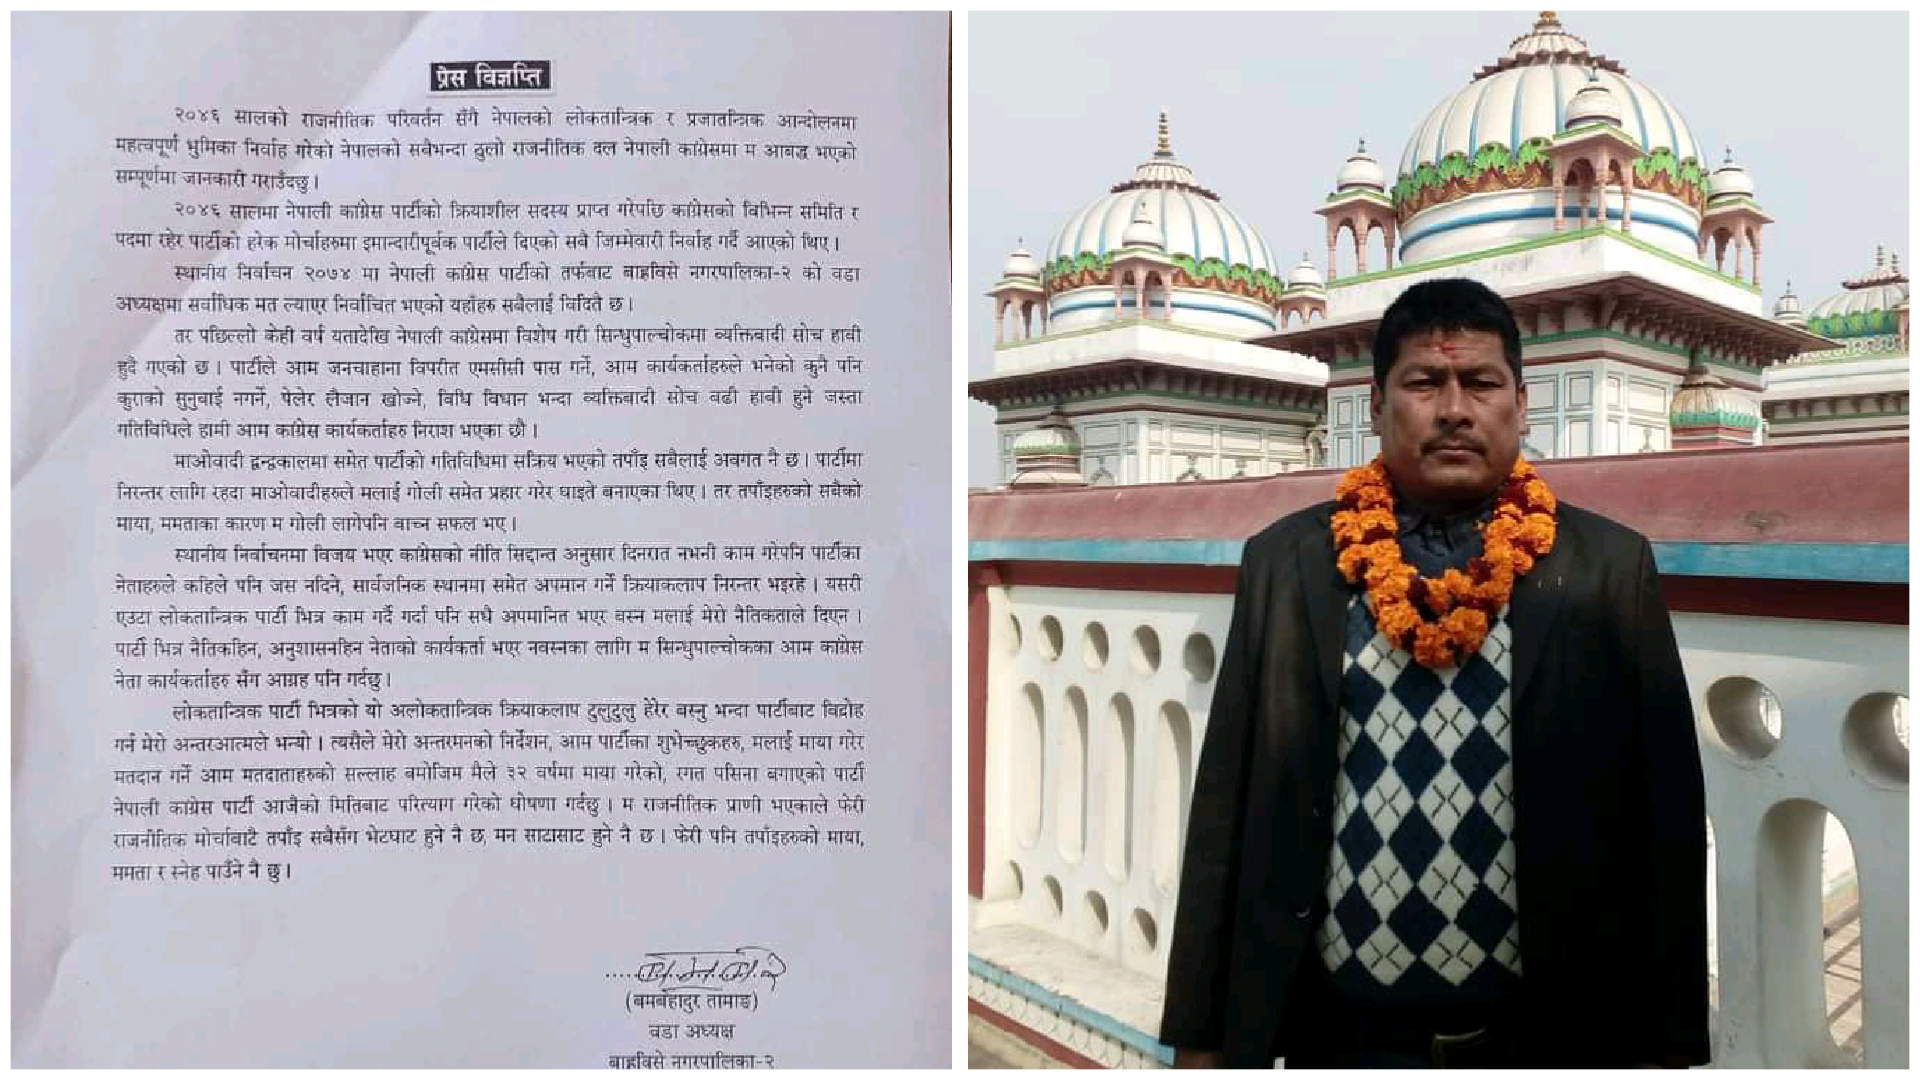 प्रेस विज्ञप्ति
२०४६ सालको राजनीतिक परिवर्तन सँगै नेपालको लोकतान्त्रिक र प्रजातन्त्रिक आन्दोलनमा
महत्वपूर्ण भुमिका निर्वाह गरेको नेपालको सबैभन्दा ठुलो राजनीतिक दल नेपाली कांग्रेसमा म आबद्ध भएको
सम्पूर्णमा जानकारी गराउँदछु ।
२०४६ सालमा नेपाली कांग्रेस पार्टीको क्रियाशील सदस्य प्राप्त गरेपछि कांग्रेसको विभिन्न समिति र
पदमा रहेर पार्टीको हरेक मोर्चाहरुमा इमान्दारीपूर्वक पार्टीले दिएको सबै जिम्मेवारी निर्वाह गर्दै आएको थिए ।
स्थानीय निर्वाचन २०७४ मा नेपाली कांग्रेस पार्टीको तर्फबाट बाह्रविसे नगरपालिका-२ को वडा
अध्यक्षमा सर्वाधिक मत ल्याएर निर्वाचित भएको यहाँहरु सबैलाई विदितै छ ।
तर पछिल्लो केही वर्ष यतादेखि नेपाली कांग्रेसमा विशेष गरी सिन्धुपाल्चोकमा व्यक्तिवादी सोच हावी
हुदै गएको छ । पार्टीले आम जनचाहाना विपरीत एमसीसी पास गर्ने, आम कार्यकर्ताहरुले भनेको कुनै पनि
कुराको सुनुवाई नगर्ने, पेलेर लैजान खोज्ने, विधि विधान भन्दा व्यक्तिवादी सोच बढी हावी हुने जस्ता
गतिविधिले हामी आम कांग्रेस कार्यकर्ताहरु निराश भएका छौ ।
माओवादी द्वन्द्वकालमा समेत पार्टीको गतिविधिमा सक्रिय भएको तपाँइ सबैलाई अवगत नै छ । पार्टीमा
निरन्तर लागि रहदा माओवादीहरुले मलाई गोली समेत प्रहार गरेर घाइते बनाएका थिए । तर तपाँइहरुको सबैको
माया, ममताका कारण म गोली लागेपनि बाच्न सफल भए ।
स्थानीय निर्वाचनमा विजय भएर कांग्रेसको नीति सिद्दान्त अनुसार दिनरात नभनी काम गरेपनि पार्टीका
नेताहरुले कहिले पनि जस नदिने, सार्वजनिक स्थानमा समेत अपमान गर्ने क्रियाकलाप निरन्तर भइरहे । यसरी
एउटा लोकतान्त्रिक पार्टी भित्र काम गर्दै गर्दा पनि सधै अपमानित भएर बस्न मलाई मेरो नैतिकताले दिएन ।
पार्टी भित्र नैतिकहिन, अनुशासनहिन नेताको कार्यकर्ता भएर नबस्नका लागि म सिन्धुपाल्चोकका आम कांग्रेस
नेता कार्यकर्ताहरु सँग आग्रह पनि गर्दछु ।
लोकतान्त्रिक पार्टी भित्रको यो अलोकतान्त्रिक क्रियाकलाप टुलुटुलु हेरेर बस्नु भन्दा पार्टीबाट विद्रोह
गर्न मेरो अन्तरआत्मले भन्यो । त्यसैले मेरो अन्तरमनको निर्देशन, आम पार्टीका शुभेच्छुकहरु, मलाई माया गरेर
मतदान गर्ने आम मतदाताहरुको सल्लाह बमोजिम मैले ३२ वर्षमा माया गरेको, रगत पसिना बगाएको पार्टी
नेपाली कांग्रेस पार्टी आजैको मितिबाट परित्याग गरेको घोषणा गर्दछु । म राजनीतिक प्राणी भएकाले फेरी
राजनीतिक मोर्चाबाटै तपाँइ सबैसँग भेटघाट हुने नै छ, मन साटासाट हुने नै छ । फेरी पनि तपाँइहरुको माया,
ममता र स्नेह पाउँने नै छु ।
(बमबहादुर तामाङ)
वडा अध्यक्ष
बाह्रविसे नगरपालिका-२